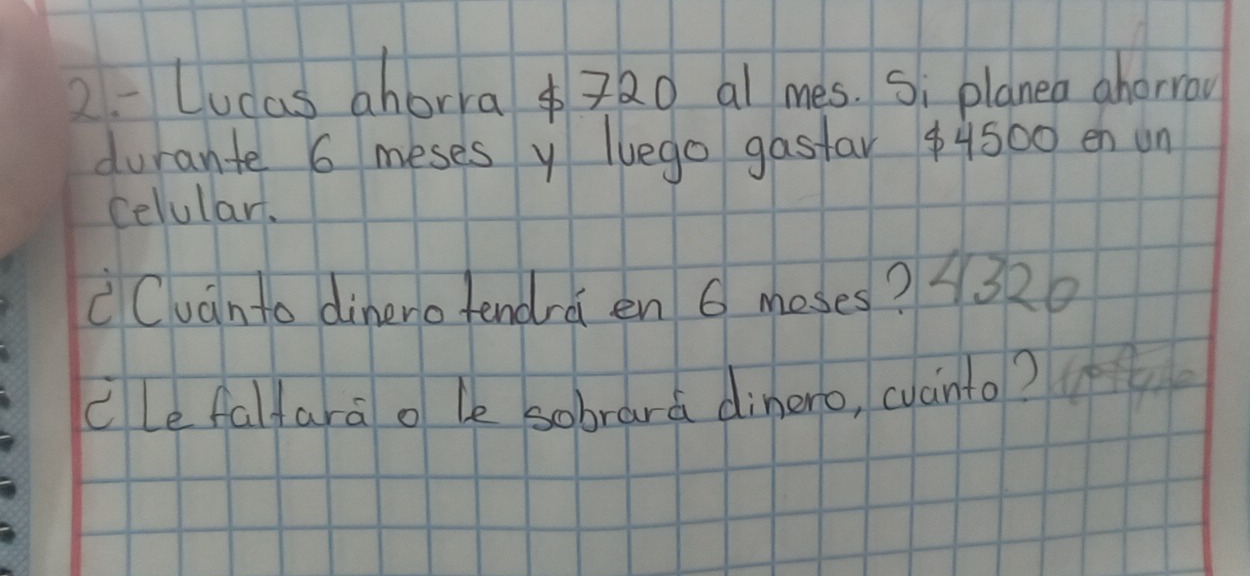 2.- Lucas ahorra $720 al mes. Si planea ahorrar
durante 6 meses y luego gastar $4500 en un
celular.
¿Cuánto dinero tendrá en 6 meses? 4320
¿Le faltará o le sobrará dinero, cuánto?